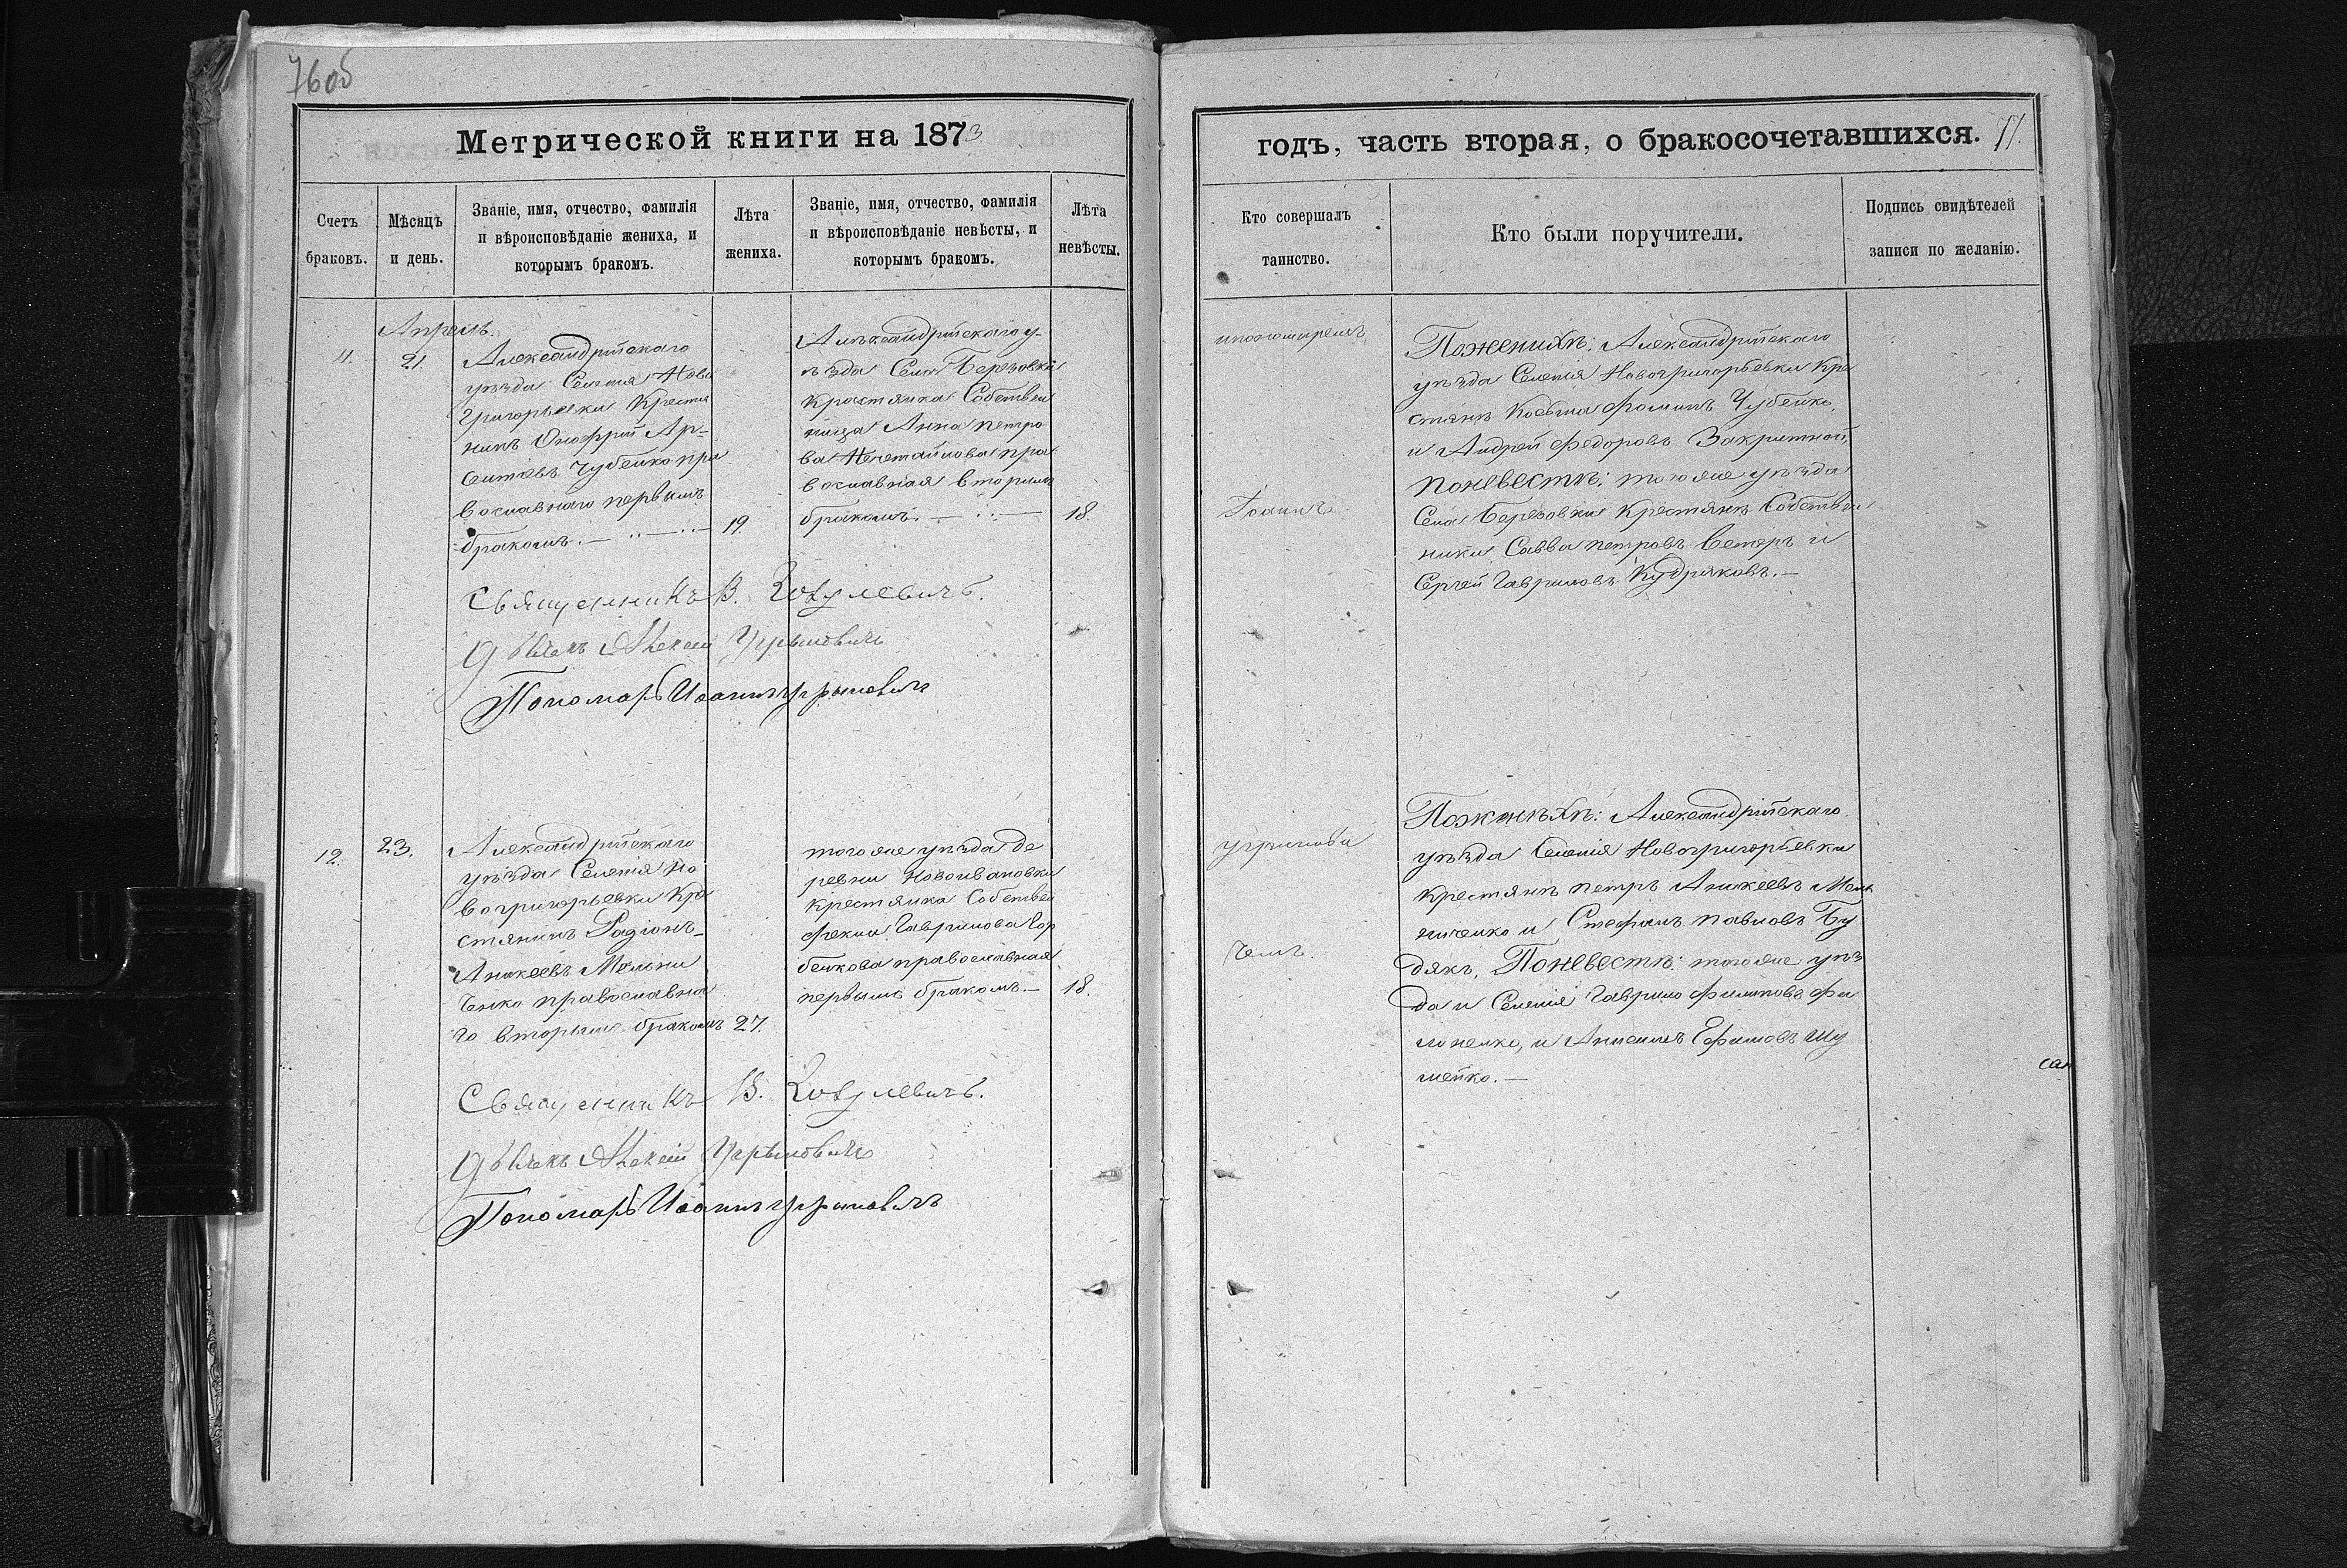 76об
Метрической книги на 1873
Счетъ браковъ.
Мѣсяцъ и день.
Званіе, имя, отчество, фамилія
и вѣроисповѣданіе жениха, и
которымъ бракомъ.
Лѣта жениха.
Званіе, имя, отчество, фамилія
и вѣроисповѣданіе невѣсты, и
которымъ бракомъ.
Лѣта невѣсты.
Апрель.
11.
21.
Александрійскаго
уѣзда Селенія Ново
григорьевки Крестья
нинъ Онофрій Ар-
сентіевъ Чубенко пра
вославнаго первымъ
бракомъ.
19.
Александрійскаго у-
ѣзда Села Березовки
Крестянка Собствен
ница Анна Петро
ва Нечетайлова пра
вославная вторымъ
бракомъ.
18.
Священникъ В.
Дьячекъ Алексій Угрыновичъ
Пономарь Иоаннъ Угрыновичъ
12.
23.
Александрійскаго
уѣзда Селенія Но
вогригорьевки Кре
стянинъ Радіонъ
Аникеевъ Мельни
ченко православна
го вторымъ бракомъ
27.
того же уѣзда де
ревни Новоивановки
Крестянка Собствен
Гаврилова Гор
бенкова православная
первымъ бракомъ.
18.
Священникъ В.
Дьячекъ Алексій Угрыновичъ
Пономарь Иоаннъ Угрыновичъ
годъ, часть вторая, о бракосочетавшихся.
77.
Кто совершалъ
таинство.
Кто были поручители.
Подпись свидѣтелей
записи по желанію.
Іоаннъ
Поженихѣ: Александрійскаго
уѣзда Селенія Новогригорьевки Кре
стянъ Косьма Фоминъ Чубенко,
и Андрей Федоровъ Закритной,
поневестѣ: того же уѣзда
Села Березовки Крестянъ Собствен
ники Савва Петровъ Ветеръ и
Сергей Гавриловъ Кудряковъ.
Поженѣхѣ: Александрійскаго
уѣзда Селенія Новогригорьевки
Крестянъ Петръ Аникеевъ Мель
ниченко и Стефанъ Павловъ Бу
дякъ, Поневестѣ: того же уѣз
да и Селенія Гаврило Филиповъ Фи
лоненко, и Анисимъ Ефимовъ Шу
мейко.